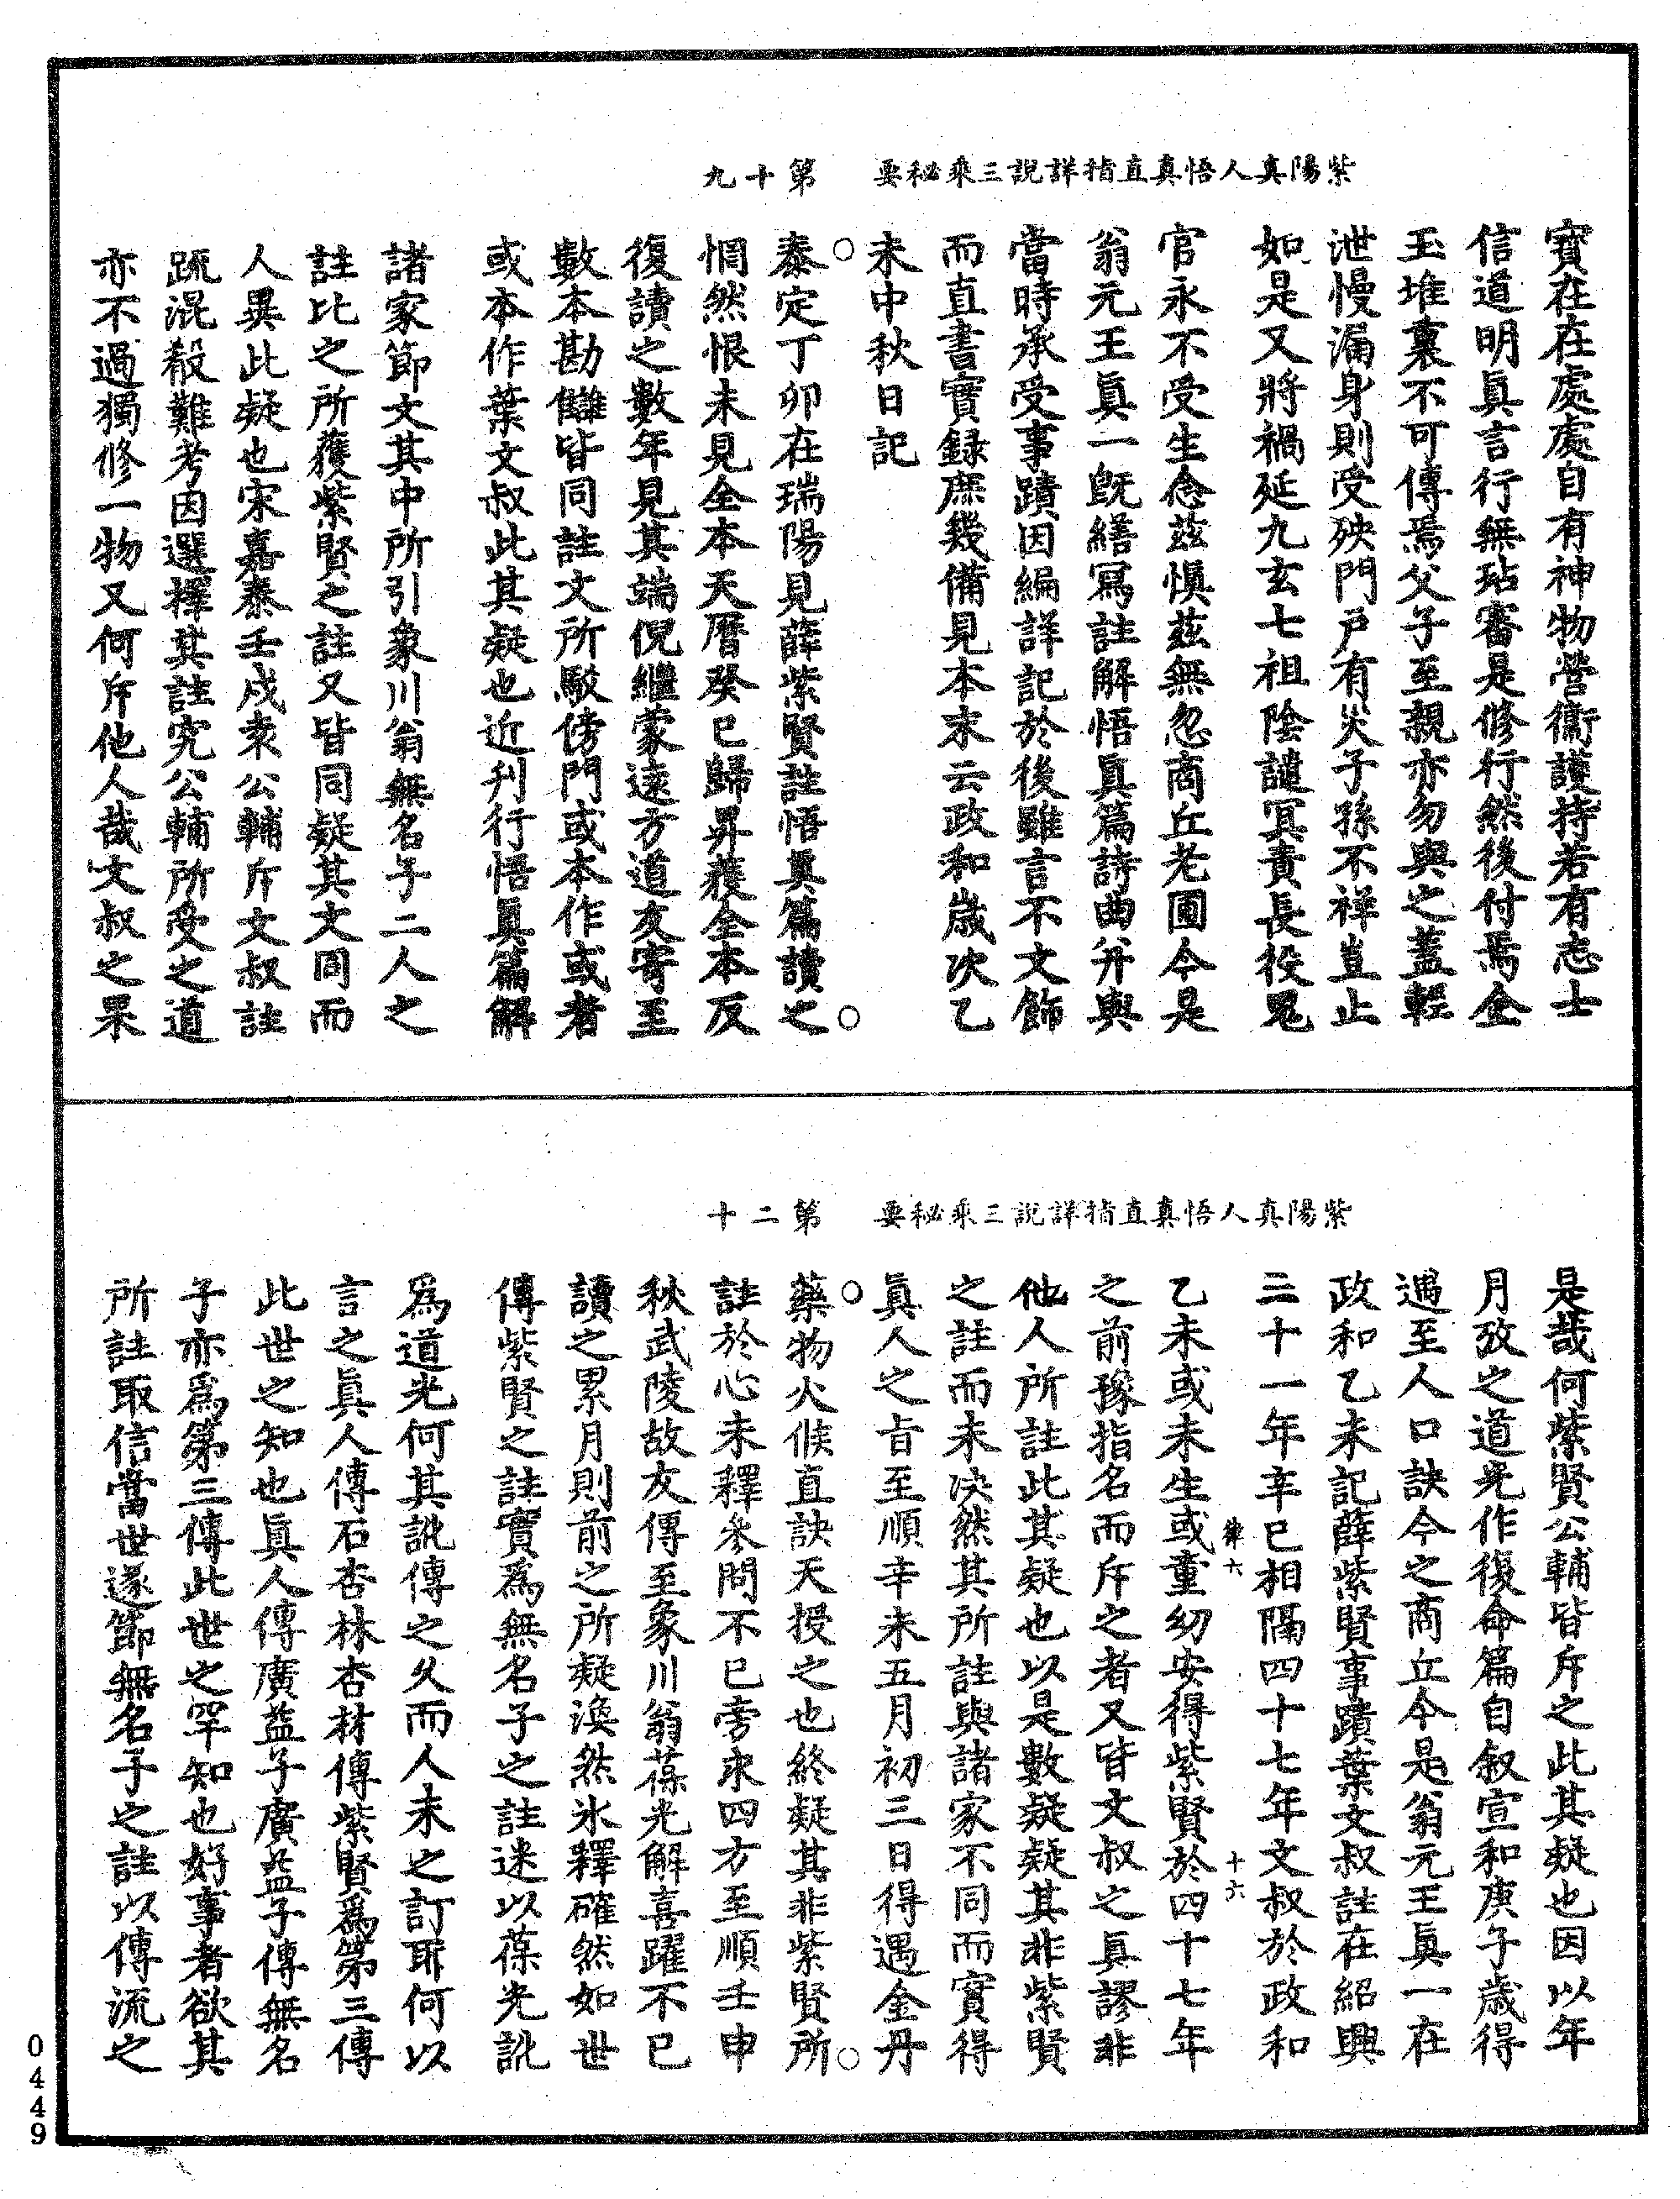 紫陽真人悟真直指詳說三乘秘要　第十九
寶在在處處自有神物營衞護持若有志士
信道明眞言行無玷審是修行然後付焉金
玉堆裏不可傳焉父子至親亦勿與之蓋輕
泄慢漏身則受殃門戸有灾子孫不祥豈止
如是又將禍延九玄七祖陰譴冥責長役鬼
官永不受生念兹愼兹無忽商丘老圃今是
翁元王眞一旣繕冩註解悟眞篇詩曲并與
當時承受事蹟因編詳記於後雖言不文飾
而直書實録庶幾備見本末云政和歲次乙
未中秋日記
○泰定丁卯在瑞陽見薛紫賢註悟眞篇讀之○
惘然恨未見全本天曆癸巳歸昇獲全本反
復讀之數年見其端倪繼蒙遠方道友寄至
數本勘讎皆同註文所駮傍門或本作或者
或本作葉文叔此其疑也近刋行悟眞篇解
諸家節文其中所引象川翁無名子二人之
註比之所獲紫賢之註又皆同疑其文同而
人異此疑也宋嘉泰壬戌表公輔斥文叔註
䟽混殽難考因選擇其註究公輔所受之道
亦不過獨修一物又何斥他人哉文叔之果
紫陽真人悟真直指詳說三乘秘要　第二十
是哉何紫賢公輔皆斥之此其疑也因以年
月攷之道光作復命篇自叙宣和庚子歲得
遇至人口訣今之商丘今是翁元王眞一在
政和乙未記薛紫賢事蹟葉文叔註在紹興
三十一年辛巳相隔四十七年文叔於政和
律六　十六
乙未或未生或童幼安得紫賢於四十七年
之前豫指名而斥之者又皆文叔之眞謬非
他人所註此其疑也以是數疑疑其非紫賢
之註而未决然其所註與諸家不同而實得
眞人之旨至順辛未五月初三日得遇金丹
○藥物火候直訣天授之也終疑其非紫賢所○
註於心未釋參問不已旁求四方至順壬申
秋武陵故友傳至象川翁葆光解喜躍不已
讀之累月則前之所疑渙然氷釋確然如世
傳紫賢之註實爲無名子之註迷以葆光訛
爲道光何其訛傳之久而人未之訂耶何以
言之眞人傳石杏林杏林傳紫賢爲第三傳
此世之知也眞人傳廣益子廣益子傳無名
子亦爲第三傳此世之罕知也好事者欲其
所註取信當世遂節無名子之註以傳流之
0449